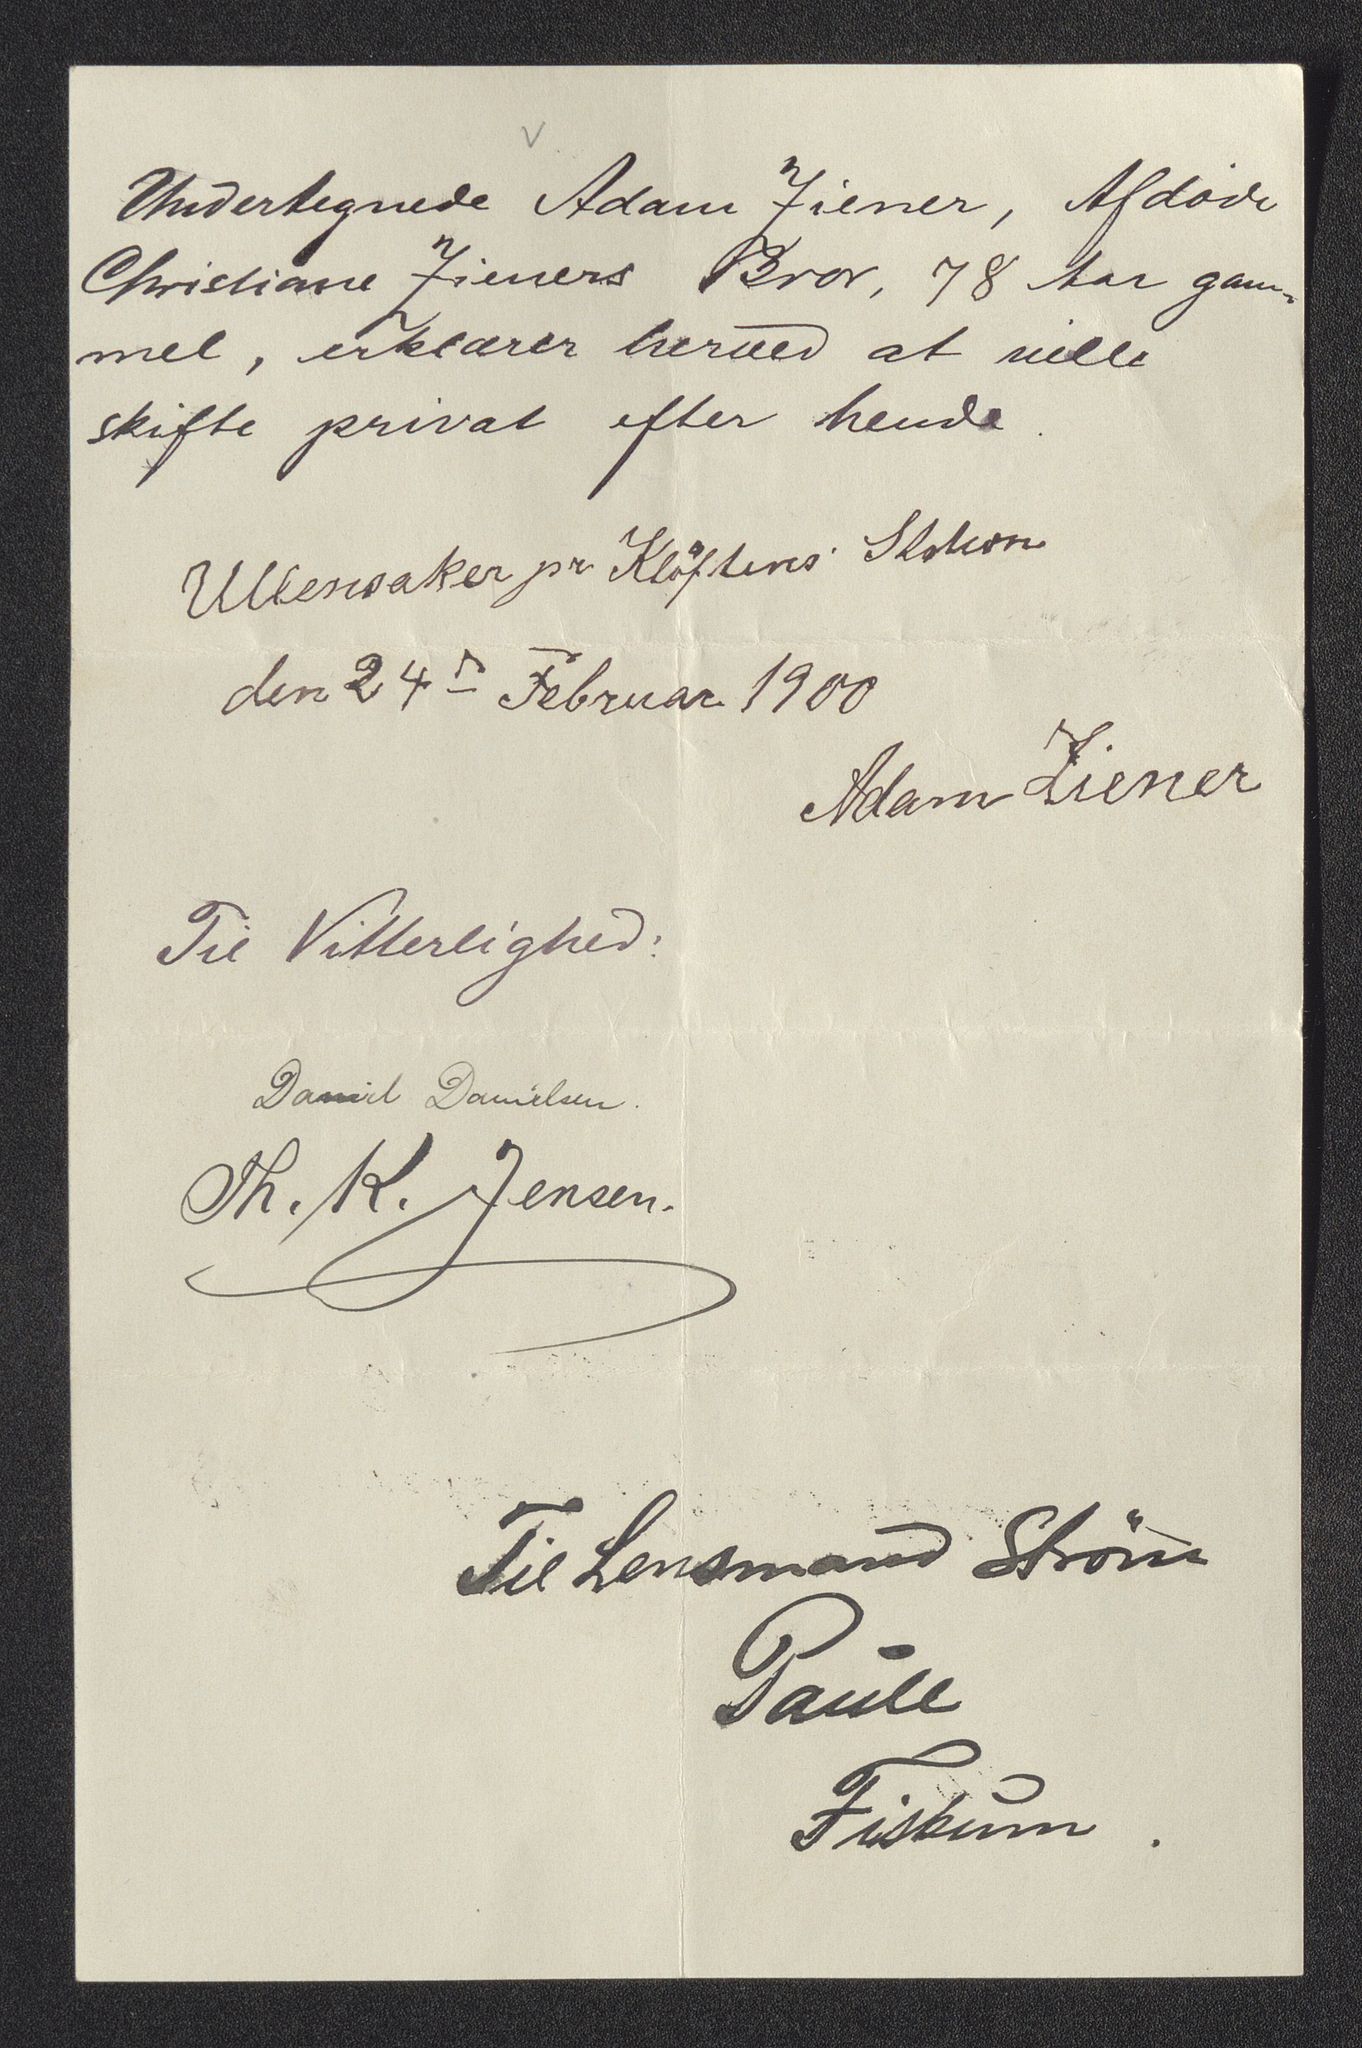 Undertegnede Adam Ziener, Afdøde
Christiane Zieners Bror, 78 Aar gam-
mel, erklærer herved at ville
skifte privat efter hende.
Ullensaker pr Kløftens Station
den 24d Februar 1900
Adam Ziener
Til Vitterlighed:
Daniel Danielsen.
Th. K. Jensen.
Til Lensmand Ström
Paule
Fiskum.